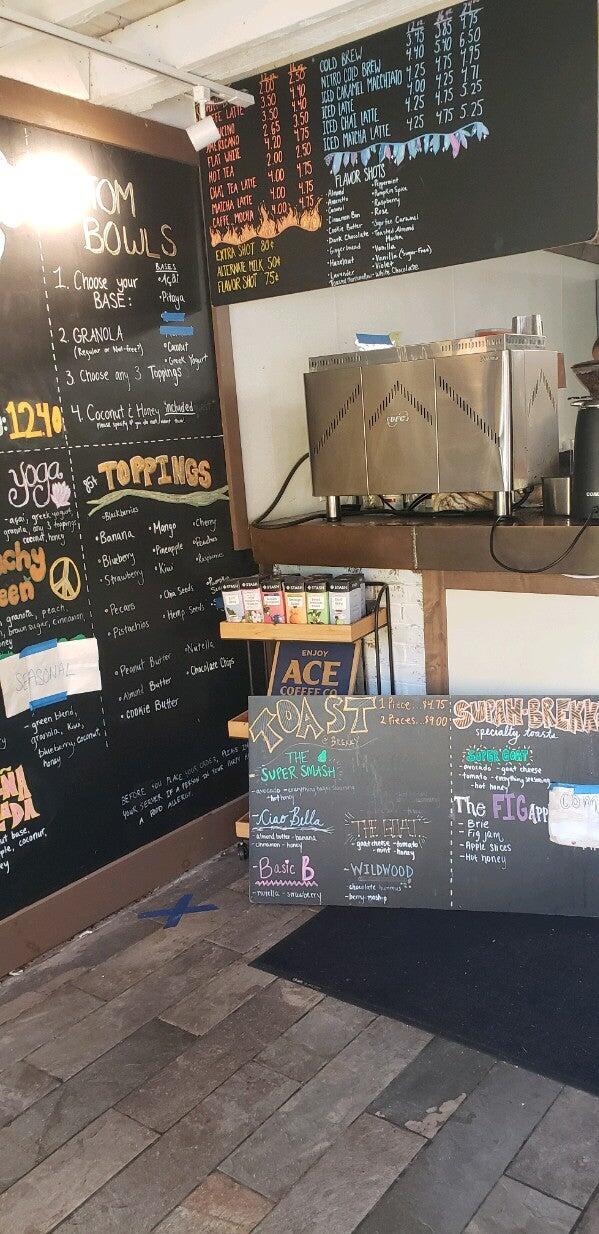 TOM
BOWLS
1. Choose your
BASE:
BASES
•Açaí
•Pitaya
•Coconut
•Greek Yogurt
2. GRANOLA
(Regular or Nut-free?)
3. Choose any 3 Toppings
4. Coconut & Honey included
:1240
yoga
- açaí, greek yogurt,
granola, any 3 toppings
coconut, honey
granita, peach,
brown sugar, cinnamon,
SEASONAL
- green blend,
granola, kiwi,
blueberry, coconut,
honey
ÑA
ADA
ut base,
ple, coconut,
TOPPINGS
•Blackberries
•Banana
•Blueberry
•Strawberry
•Pecans
•Pistachios
•Peanut Butter
•Almond Butter
•COOKIE Butter
•Mango
•Pineapple
•Kiwi
•Chia Seeds
•Hemp Seeds
•Nutella
•Chocolate Chips
•Cherry
•Peaches
•Raspberries
BEFORE YOU PLACE YOUR ORDER, PLEASE IN
YOUR SERVER IF A PERSON IN YOUR PARTY H
A FOOD ALLERGY.
2.00 2.50
LATTE 3.50 4.40
3.50 4.40
AMERICANO 2.65 3.50
FLAT WHITE 4.20 4.75
HOT TEA 2.00 2.50
CHAI TEA LATTE 4.00 4.75
MATCHA LATTE 4.00 4.75
CAFFE MOCHA 4.00 4.75
EXTRA SHOT 80¢
ALTERNATE MILK 50¢
FLAVOR SHOT 75¢
COLD BREW 3.45 3.85 4.75
NITRO COLD BREW 4.40 5.40 6.50
ICED CARAMEL MACCHIATO 4.25 4.75 4.95
ICED LATTE 4.00 4.25 4.71
ICED CHAI LATTE 4.25 4.75 5.25
ICED MATCHA LATTE 4.25 4.75 5.25
FLAVOR SHOTS
•Almond
•Amaretto
•Caramel
•Cinnamon Bun
•Cookie Butter
•Dark Chocolate
•Gingerbread
•Hazelnut
•Lavender
•Toasted Marshmallow
•Peppermint
•Pumpkin Spice
•Raspberry
•Rose
•Salted Caramel
•Toasted Almond
Mocha
•Vanilla
•Vanilla (Sugar-Free)
•Violet
•White Chocolate
STASH STASH STASH STASH STASH STASH
ENJOY
ACE
COFFEE CO.
TOAST
1 Piece...$4.75
2 Pieces..$9.00
THE
SUPER SMASH
- avocado - everything bagel seasoning
- hot honey
Ciao Bella
- almond butter - banana
- cinnamon - honey
Basic B
- nutella - strawberry
THE GOAT
- goat cheese - tomato
- mint - honey
~WILDWOOD
- chocolate hummus
- berry mash-up
specialty toasts
SUPER GOAT
- avocado - goat cheese
- tomato - everything seasoning
- hot honey
The FIG APP
- Brie
- Fig jam
- Apple slices
- Hot honey
COM